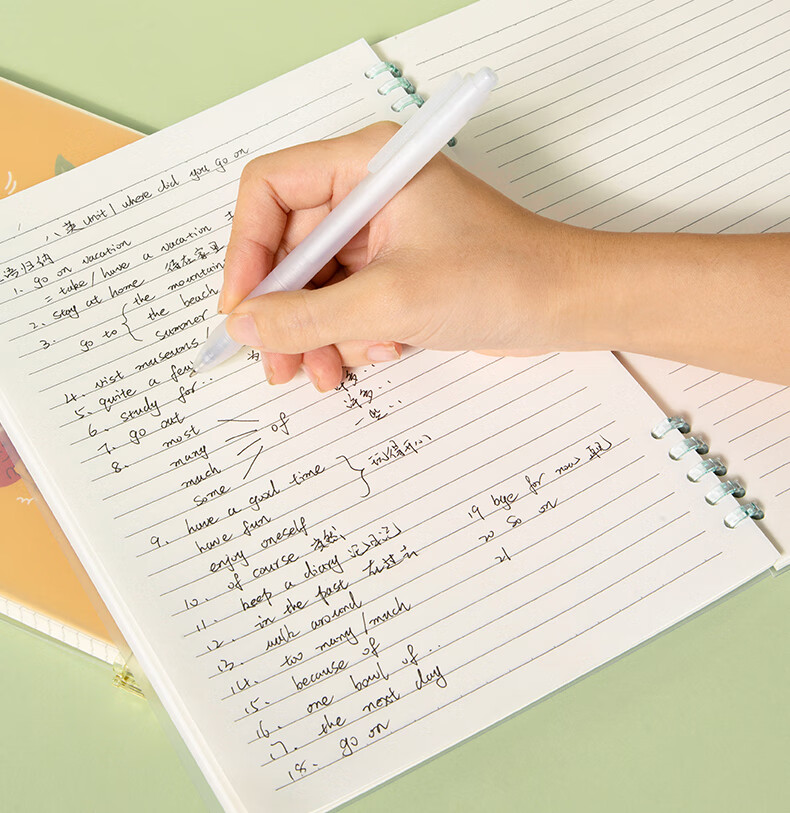 八英 Unit 1 where did you go on
语归纳
1. go on vacation
= take / have a vacation
2. stay at home 待在家里
3. go to { the mountain
the beach
summer
4. vist museums
5. quite a few
6. study for...
7. go out
8. most
many of 许多...
much 许多...
some 一些...
9. have a good time } 玩得开心
have fun
enjoy oneself
10. of course 当然
11. keep a diary 记日记
12. in the past 在过去
13. walk around
14. too many / much
15. because of
16. one bowl of ...
17. the next day
18. go on
19 bye for now 再见
20 so on
21